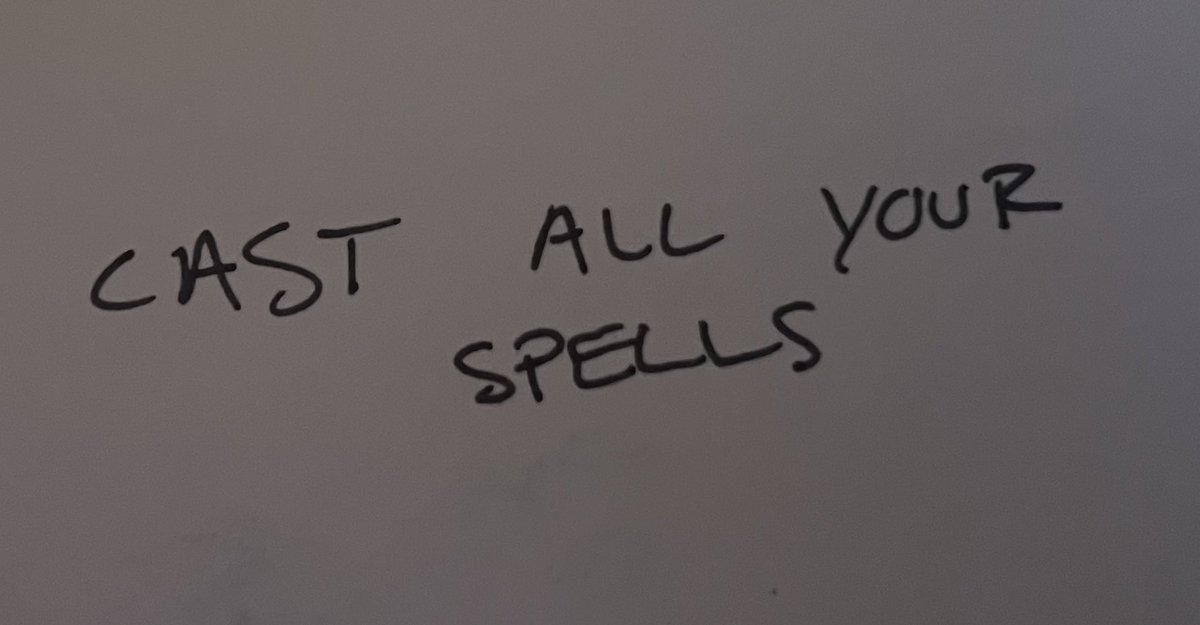 CAST ALL YOUR
SPELLS